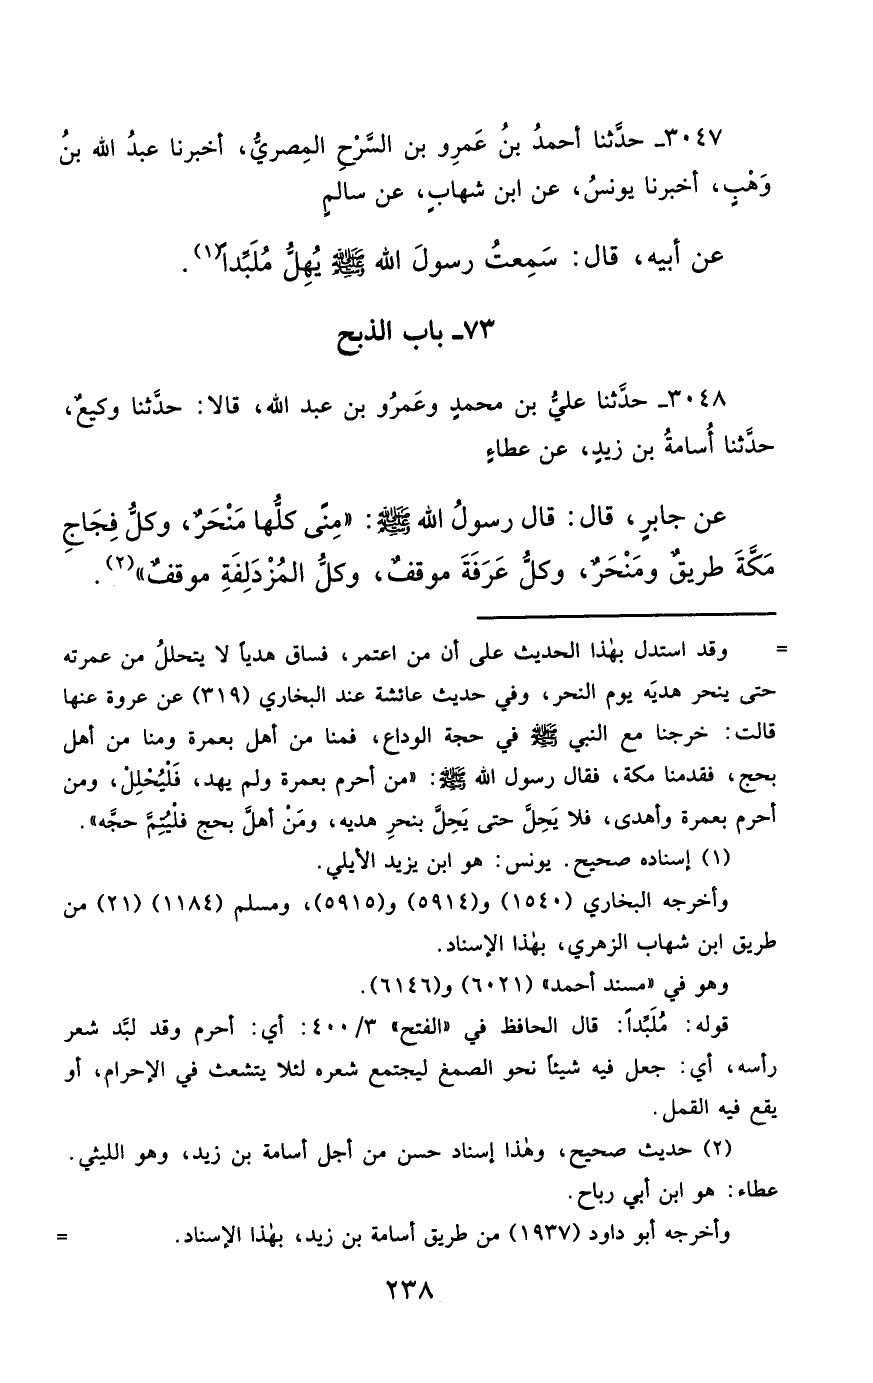 ٣٠٤٧ـ حدَّثنا أحمدُ بنُ عَمرِو بن السَّرْحِ المِصريُّ، أخبرنا عبدُ الله بنُ
وَهْبٍ، أخبرنا يونسُ، عن ابن شهابٍ، عن سالمٍ
عن أبيه، قال: سَمِعتُ رسولَ الله ﷺ يُهِلُّ مُلَبِّداً(١).
٧٣ـ باب الذبح
٣٠٤٨ـ حدَّثنا عليُّ بن محمدٍ وعَمرُو بن عبد الله، قالا: حدَّثنا وكيعٌ،
حدَّثنا أُسامةُ بن زيدٍ، عن عطاءٍ
عن جابرٍ، قال: قال رسولُ الله ﷺ: «مِنًى كلُّها مَنْحَرٌ، وكلُّ فِجَاجِ
مَكَّةَ طريقٌ ومَنْحَرٌ، وكلُّ عَرَفَةَ موقفٌ، وكلُّ المُزْدَلِفَةِ موقفٌ»(٢).
= وقد استدل بهٰذا الحديث على أن من اعتمر، فساق هدياً لا يتحللُ من عمرته
حتى ينحر هديَه يوم النحر، وفي حديث عائشة عند البخاري (٣١٩) عن عروة عنها
قالت: خرجنا مع النبي ﷺ في حجة الوداع، فمنا من أهل بعمرة ومنا من أهل
بحج، فقدمنا مكة، فقال رسول الله ﷺ: «من أحرم بعمرة ولم يهد، فَلْيُحْلِلْ، ومن
أحرم بعمرة وأهدى، فلا يَحِلَّ حتى يَحِلَّ بنحرِ هديه، ومَنْ أهلَّ بحج فلْيُتِمَّ حجَّه».
(١) إسناده صحيح. يونس: هو ابن يزيد الأيلي.
وأخرجه البخاري (١٥٤٠) و(٥٩١٤) و(٥٩١٥)، ومسلم (١١٨٤) (٢١) من
طريق ابن شهاب الزهري، بهٰذا الإسناد.
وهو في «مسند أحمد» (٦٠٢١) و(٦١٤٦).
قوله: مُلَبِّداً: قال الحافظ في «الفتح» ٣/ ٤٠٠: أي: أحرم وقد لبَّد شعر
رأسه، أي: جعل فيه شيئاً نحو الصمغ ليجتمع شعره لئلا يتشعث في الإحرام، أو
يقع فيه القمل.
(٢) حديث صحيح، وهٰذا إسناد حسن من أجل أسامة بن زيد، وهو الليثي.
عطاء: هو ابن أبي رباح.
وأخرجه أبو داود (١٩٣٧) من طريق أسامة بن زيد، بهٰذا الإسناد. =
٢٣٨